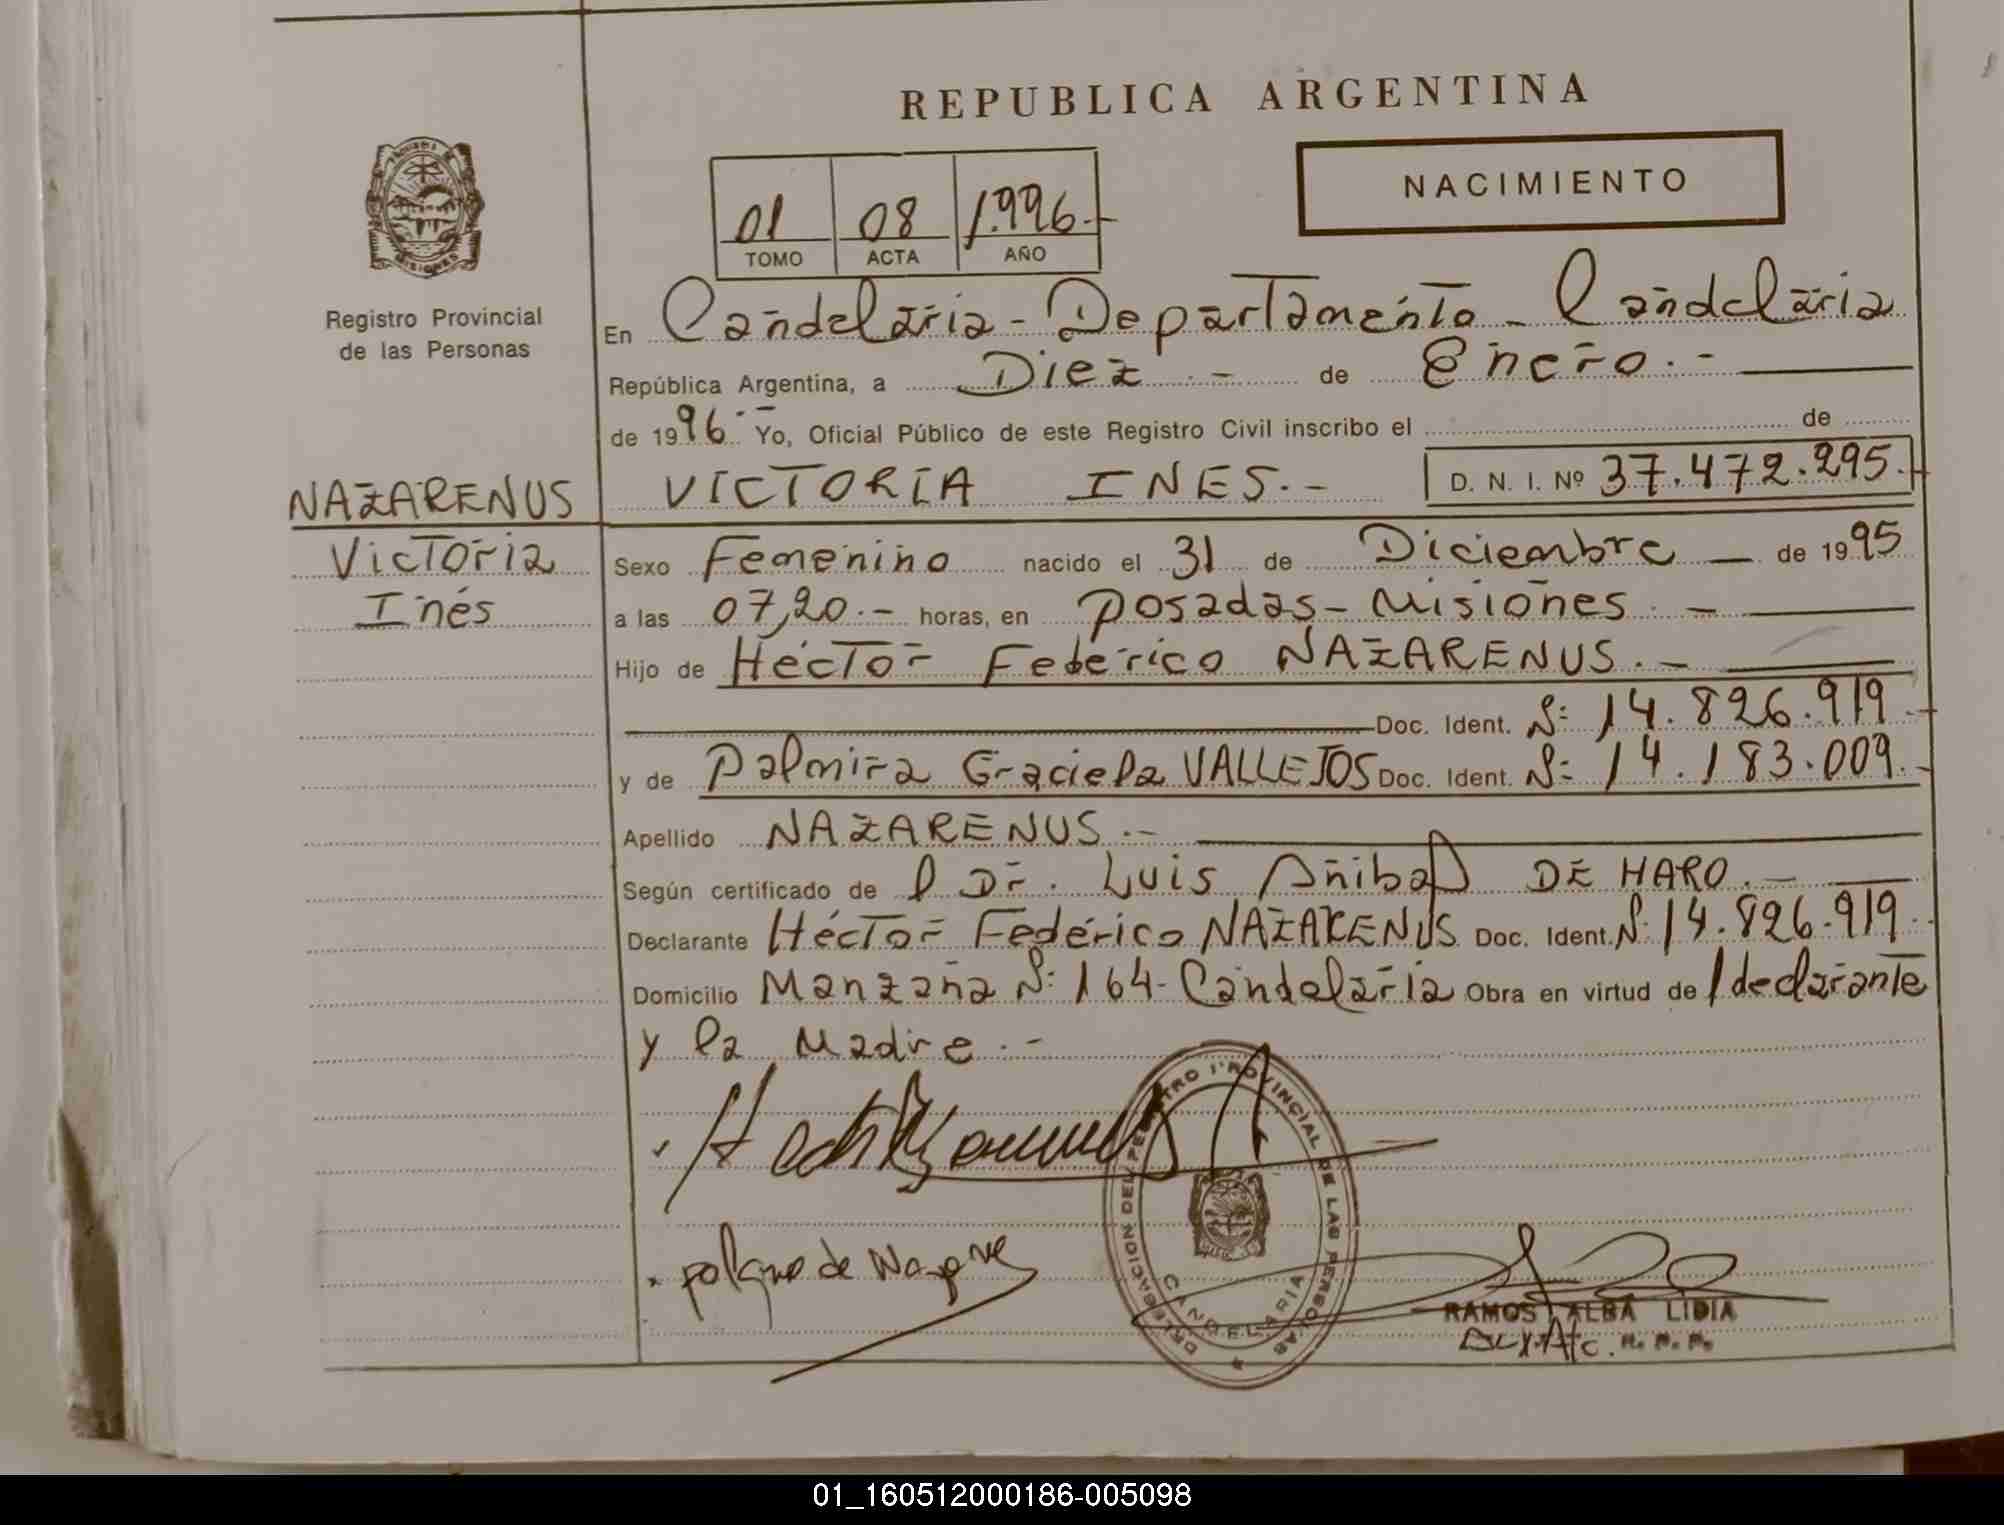 REPUBLICA ARGENTINA
NACIMIENTO
01 08 1.996.-
TOMO ACTA AÑO
Registro Provincial
de las Personas
En Candelaria - Departamento - Candelaria
República Argentina, a Diez .- de Enero.-
de 1996.- Yo, Oficial Público de este Registro Civil inscribo el de
NAZARENUS
Victoria
Inés
VICTORIA INES.- D. N. I. Nº 37.472.295.-
Sexo Femenino nacido el 31 de Diciembre - de 1995
a las 07,20.- horas, en Posadas - Misiones.-
Hijo de Héctor Federico NAZARENUS.-
Doc. Ident. Nº: 14.826.919.-
y de Palmira Graciela VALLEJOS Doc. Ident. Nº: 14.183.009.-
Apellido NAZARENUS.-
Según certificado de l Dr. Luis Anibal DE HARO.-
Declarante Héctor Federico NAZARENUS Doc. Ident. Nº: 14.826.919.-
Domicilio Manzana Nº: 164- Candelaria Obra en virtud de l declarante
y la Madre.-
DELEGACION DEL REGISTRO PROVINCIAL DE LAS PERSONAS
CANDELARIA
RAMOS, ALBA LIDIA
R. P. P.
01_160512000186-005098